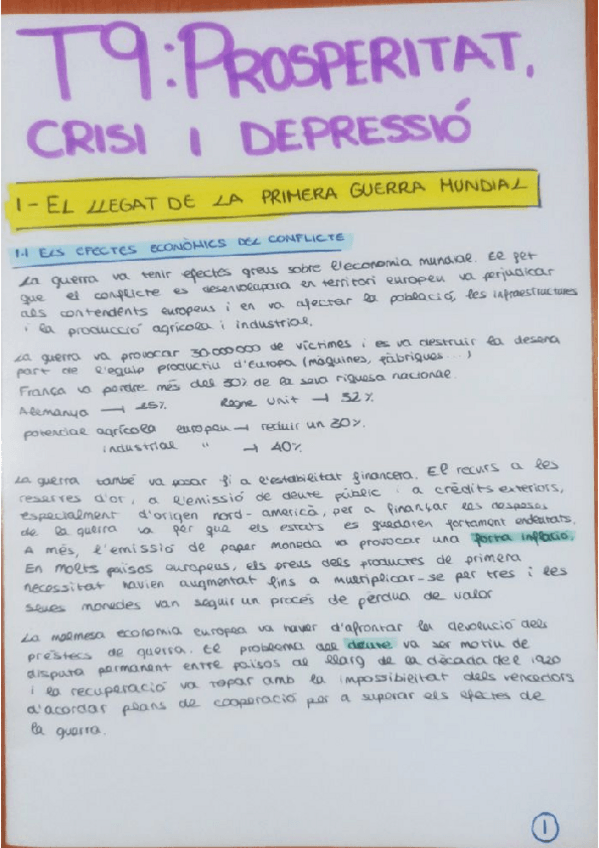 T9: PROSPERITAT,
CRISI I DEPRESSIÓ
1- EL LLEGAT DE LA PRIMERA GUERRA MUNDIAL
1.1 ELS EFECTES ECONÒMICS DEL CONFLICTE
La guerra va tenir efectes greus sobre l'economia mundial. El fet
que el conflicte es desenvolupara en territori europeu va perjudicar
als contendents europeus i en va afectar la població, les infraestructures
i la producció agrícola i industrial.
La guerra va provocar 30.000.000 de víctimes i es va destruir la desena
part de l'equip productiu d'Europa (màquines, fàbriques...)
França va perdre més del 30% de la seva riquesa nacional.
Alemanya → 25% Regne Unit → 32%
potencial agrícola europeu → reduir un 30%.
industrial " → 40%
La guerra també va posar fi a l'estabilitat financera. El recurs a les
reserves d'or, a l'emissió de deute públic i a crèdits exteriors,
especialment d'origen nord-americà, per a finançar les despeses
de la guerra va fer que els estats es quedaren fortament endeutats.
A més, l'emissió de paper moneda va provocar una forta inflació.
En molts països europeus, els preus dels productes de primera
necessitat havien augmentat fins a multiplicar-se per tres i les
seues monedes van seguir un procés de pèrdua de valor
La malmesa economia europea va haver d'afrontar la devolució dels
préstecs de guerra. El problema del deute va ser motiu de
disputa permanent entre països al llarg de la dècada del 1920
i la recuperació va topar amb la impossibilitat dels vencedors
d'acordar plans de cooperació per a superar els efectes de
la guerra.
1